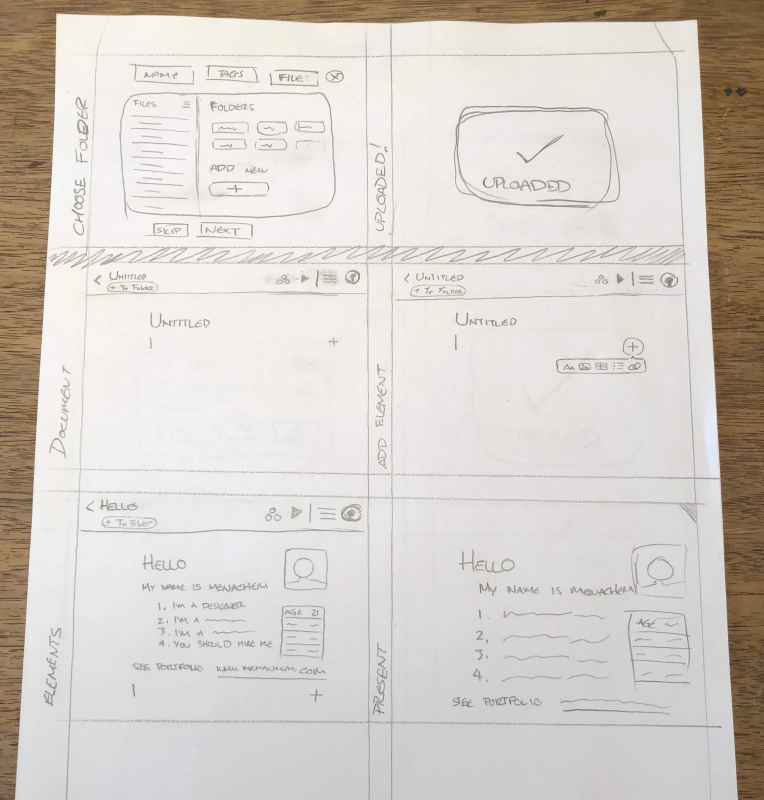 CHOOSE FOLDER
NAME TAGS FILE X
FILES
FOLDERS
ADD NEW
+
SKIP NEXT
UPLOADED!
UPLOADED
DOCUMENT
< UNTITLED
+ TO FOLDER
UNTITLED
+
ADD ELEMENT
< UNTITLED
+ TO FOLDER
UNTITLED
+
Aa
ELEMENTS
< HELLO
HELLO
MY NAME IS MENACHEM
1. I'M A DESIGNER
2. I'M A
3. I'M A
4. YOU SHOULD HIRE ME
AGE 21
SEE PORTFOLIO WWW.MENACHEM.COM
+
PRESENT
HELLO
MY NAME IS MENACHEM
1.
2.
3.
4.
AGE
SEE PORTFOLIO